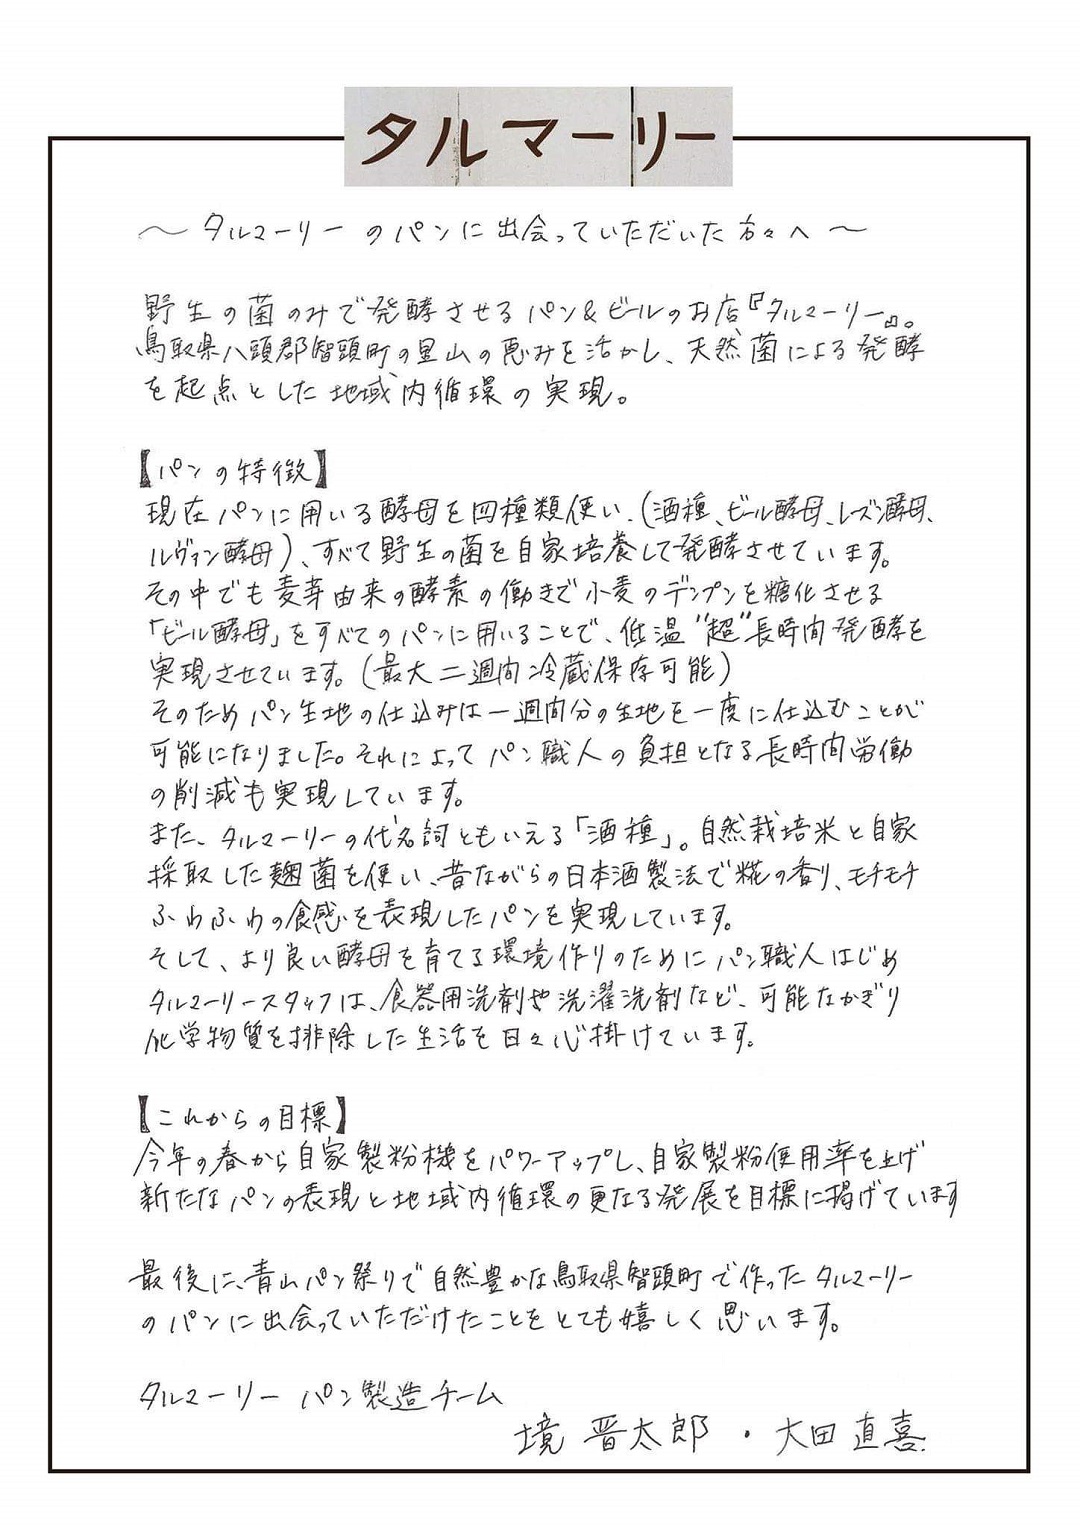 タルマーリー
～タルマーリーのパンに出会っていただいた方々へ～
野生の菌のみで発酵させるパン&ビールのお店『タルマーリー』。
鳥取県八頭郡智頭町の里山の恵みを活かし、天然菌による発酵
を起点とした地域内循環の実現。
【パンの特徴】
現在パンに用いる酵母を四種類使い、(酒種、ビール酵母、レーズン酵母、
ルヴァン酵母)、すべて野生の菌を自家培養して発酵させています。
その中でも麦芽由来の酵素の働きで小麦のデンプンを糖化させる
「ビール酵母」をすべてのパンに用いることで、低温"超"長時間発酵を
実現させています。(最大二週間冷蔵保存可能)
そのためパン生地の仕込みは一週間分の生地を一度に仕込むことが
可能になりました。それによってパン職人の負担となる長時間労働
の削減も実現しています。
また、タルマーリーの代名詞ともいえる「酒種」。自然栽培米と自家
採取した麹菌を使い、昔ながらの日本酒製法で糀の香り、モチモチ
ふわふわの食感を表現したパンを実現しています。
そして、より良い酵母を育てる環境作りのためにパン職人はじめ
タルマーリースタッフは、食器用洗剤や洗濯洗剤など、可能なかぎり
化学物質を排除した生活を日々心掛けています。
【これからの目標】
今年の春から自家製粉機をパワーアップし、自家製粉使用率を上げ
新たなパンの表現と地域内循環の更なる発展を目標に掲げています
最後に、青山パン祭りで自然豊かな鳥取県智頭町で作ったタルマーリー
のパンに出会っていただけたことをとても嬉しく思います。
タルマーリー パン製造チーム
境 晋太郎・大田直喜